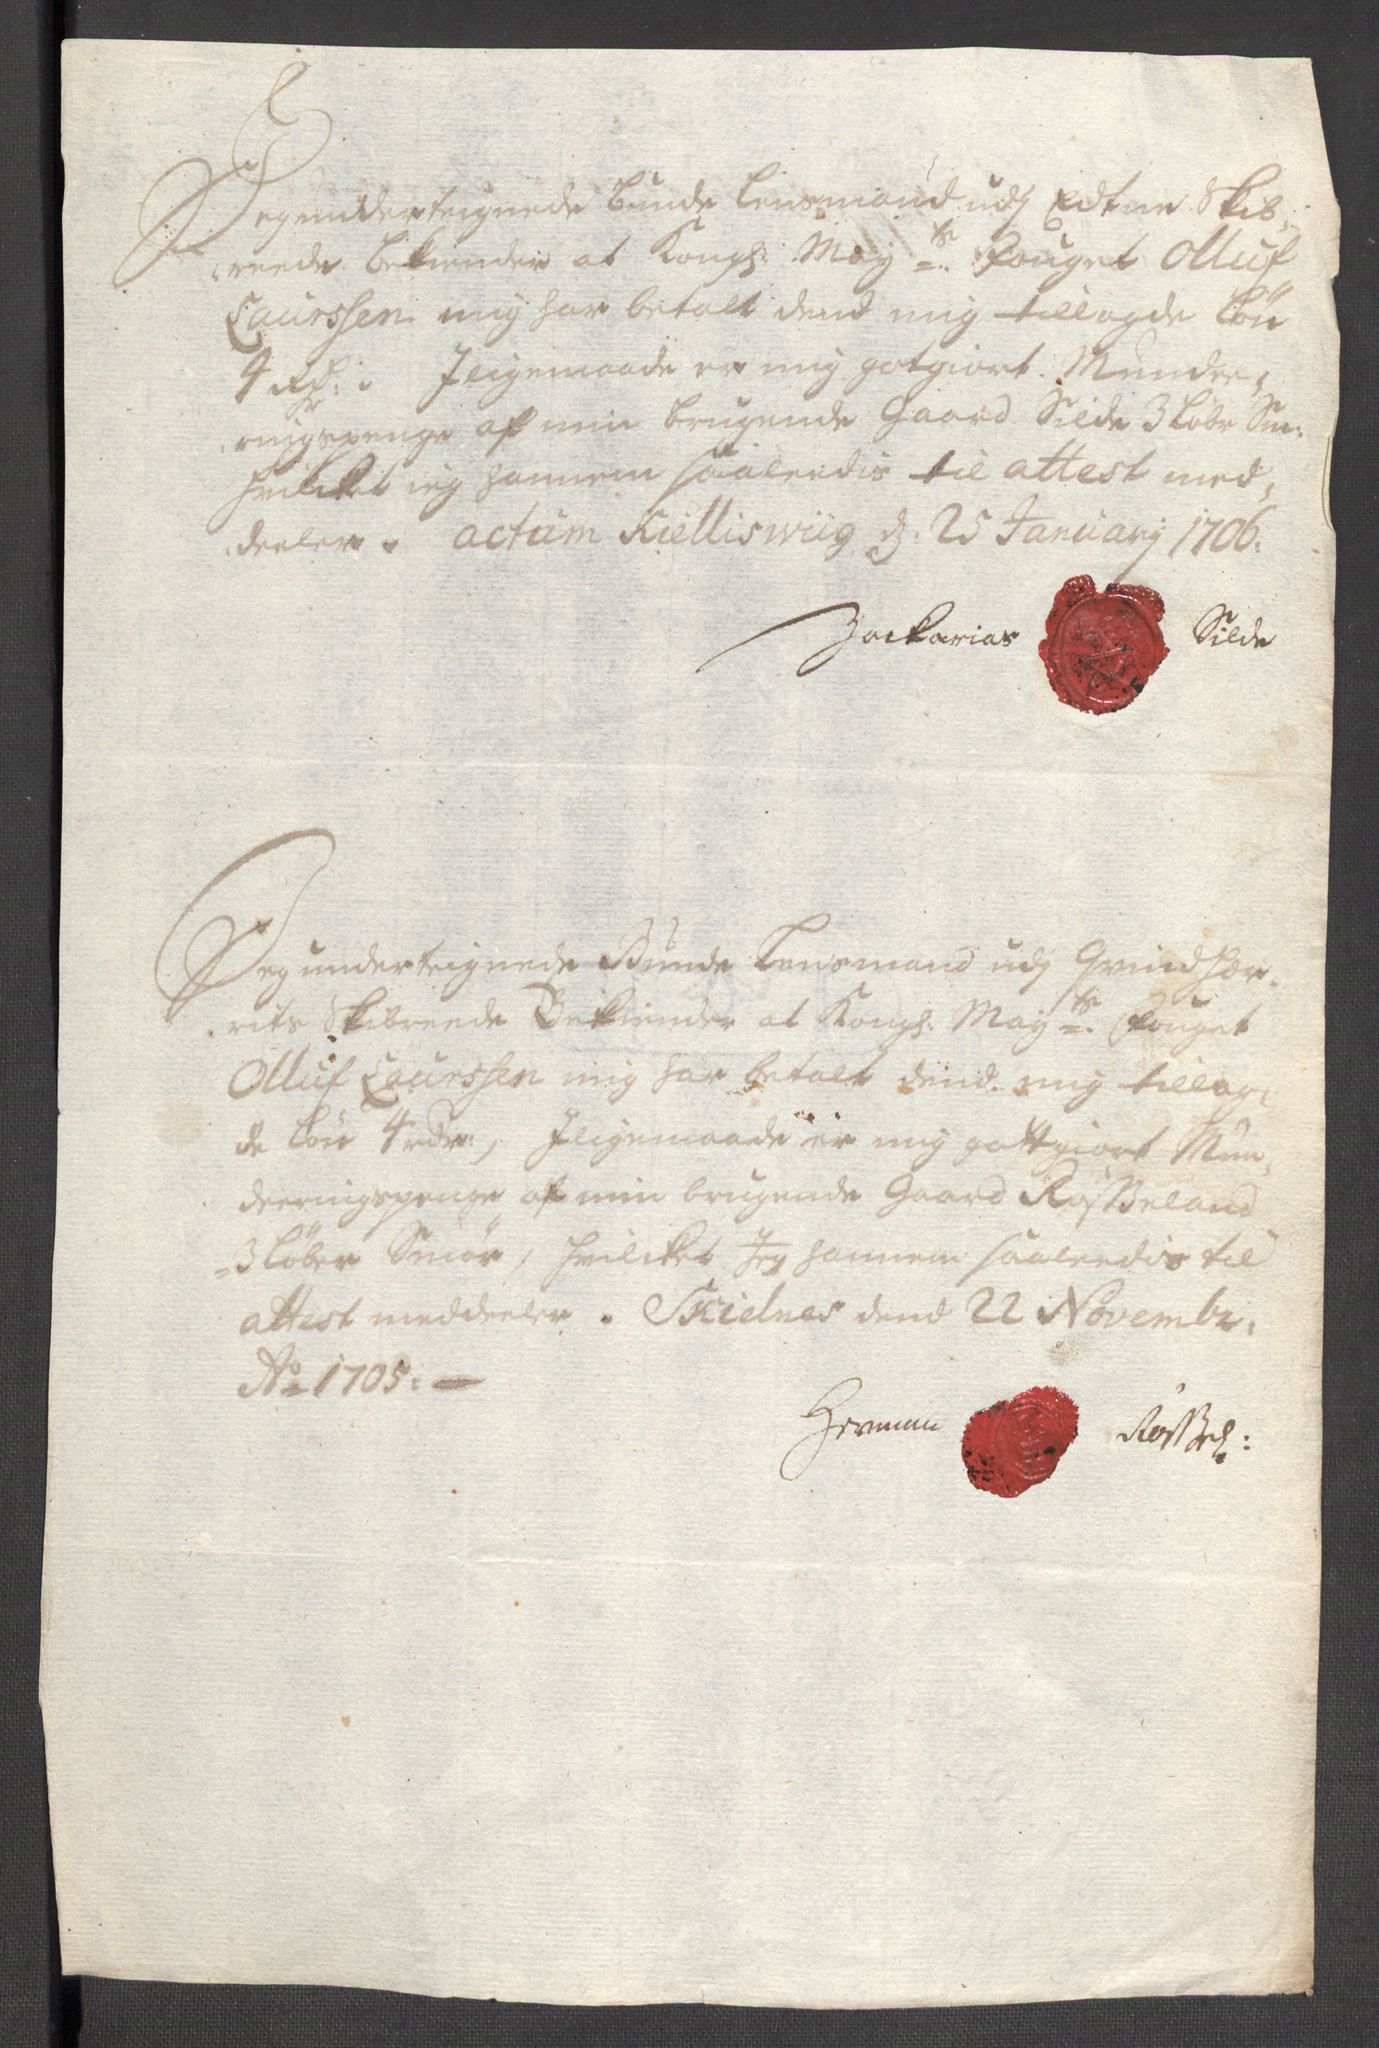 Jeg underteignede Bunde Lensmand udj Edtne Skib,
reede Bekiender at Kongl: May.ts Fouget Olluf
Laurssen mig har betalt dend mig tillagde Løn
4 Rd: Jligemaade er mig gotgiort Munde,
ringspenge af min brugende Gaard Silde 3 Løbr Smr:
hvilcket ieg hannem saaleedis til attest med,
deeler. actum Kielliswiig d: 25 Januarij 1706.
Zackarias Silde
Jeg underteignede Bunde Lensmand udj Qvindhær,
rits Skibreede Bekiender at Kongl: May.ts Fouget
Olluf Laurssen mig har betalt dend mig tillag,
de Løn 4 rdr:, Jligemaade er mig gottgiort Mun,
deringspenge af min brugende Gaard Røsseland
3 Løber Smør, hvilcket Jeg hannem saaleedis til
attest meddeeler. Skielnes dend 22 Novembr:
Ao 1705.
Herman Røssel: